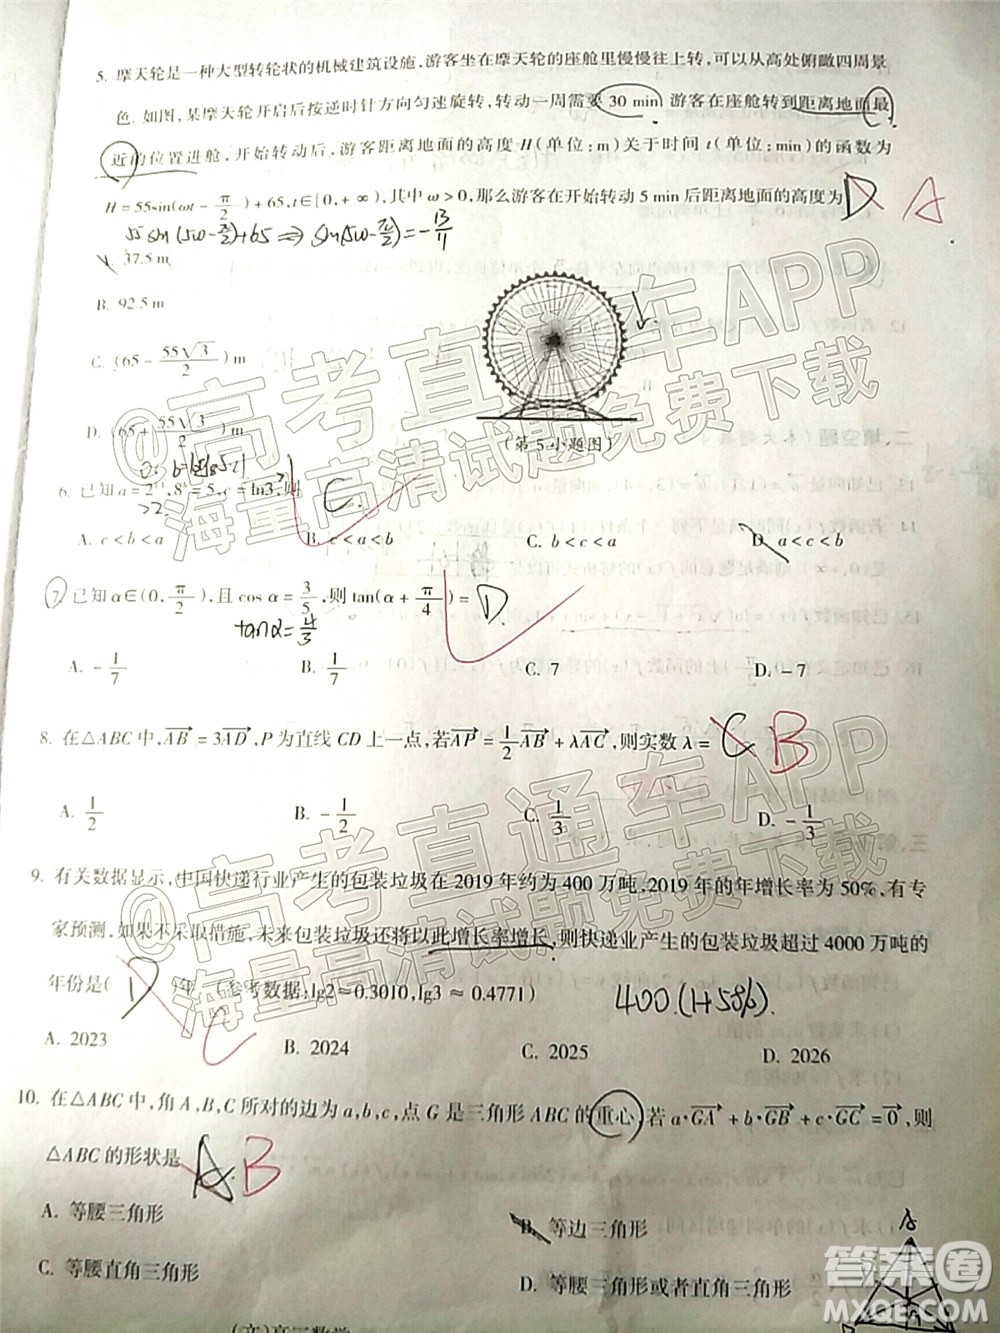 5. 摩天轮是一种大型转轮状的机械建筑设施,游客坐在摩天轮的座舱里慢慢往上转,可以从高处俯瞰四周景
色. 如图,某摩天轮开启后按逆时针方向匀速旋转,转动一周需要 30 min. 游客在座舱转到距离地面最
近的位置进舱,开始转动后,游客距离地面的高度 H(单位:m)关于时间 t(单位:min)的函数为
H = 55sin(ωt - π/2) + 65, t∈[0, +∞),其中 ω > 0,那么游客在开始转动 5 min 后距离地面的高度为 D A
55 sin(5ω - π/2) + 65 ⇒ sin(5ω - π/2) = -13/11
A. 37.5 m
B. 92.5 m
C. (65 - 55√3/2) m
D. (65 + 55√3/2) m
(第 5 小题图)
6. 已知 a = 2^1.1, 8^b = 5, c = ln3,则 C.
>2
A. c < b < a
B. c < a < b
C. b < c < a
D. a < c < b
7. 已知 α∈(0, π/2),且 cos α = 3/5,则 tan(α + π/4) = D.
tanα = 4/3
A. -1/7
B. 1/7
C. 7
D. -7
8. 在△ABC 中, AB = 3AD, P 为直线 CD 上一点,若 AP = 1/2 AB + λAC,则实数 λ = C B
A. 1/2
B. -1/2
C. 1/3
D. -1/3
9. 有关数据显示,中国快递行业产生的包装垃圾在 2019 年约为 400 万吨,2019 年的年增长率为 50%,有专
家预测,如果不采取措施,未来包装垃圾还将以此增长率增长,则快递业产生的包装垃圾超过 4000 万吨的
年份是( D )年. (参考数据:lg2≈0.3010,lg3≈0.4771) 400.(1+50%).
C
A. 2023
B. 2024
C. 2025
D. 2026
10. 在△ABC 中,角 A,B,C 所对的边为 a,b,c,点 G 是三角形 ABC 的重心,若 a·GA + b·GB + c·GC = 0,则
△ABC 的形状是 A. B
A. 等腰三角形
B. 等边三角形
C. 等腰直角三角形
D. 等腰三角形或者直角三角形
(文)高三数学
@高考直通车APP
海量高清试题免费下载
@高考直通车APP
海量高清试题免费下载
答案圈
MXQE.COM